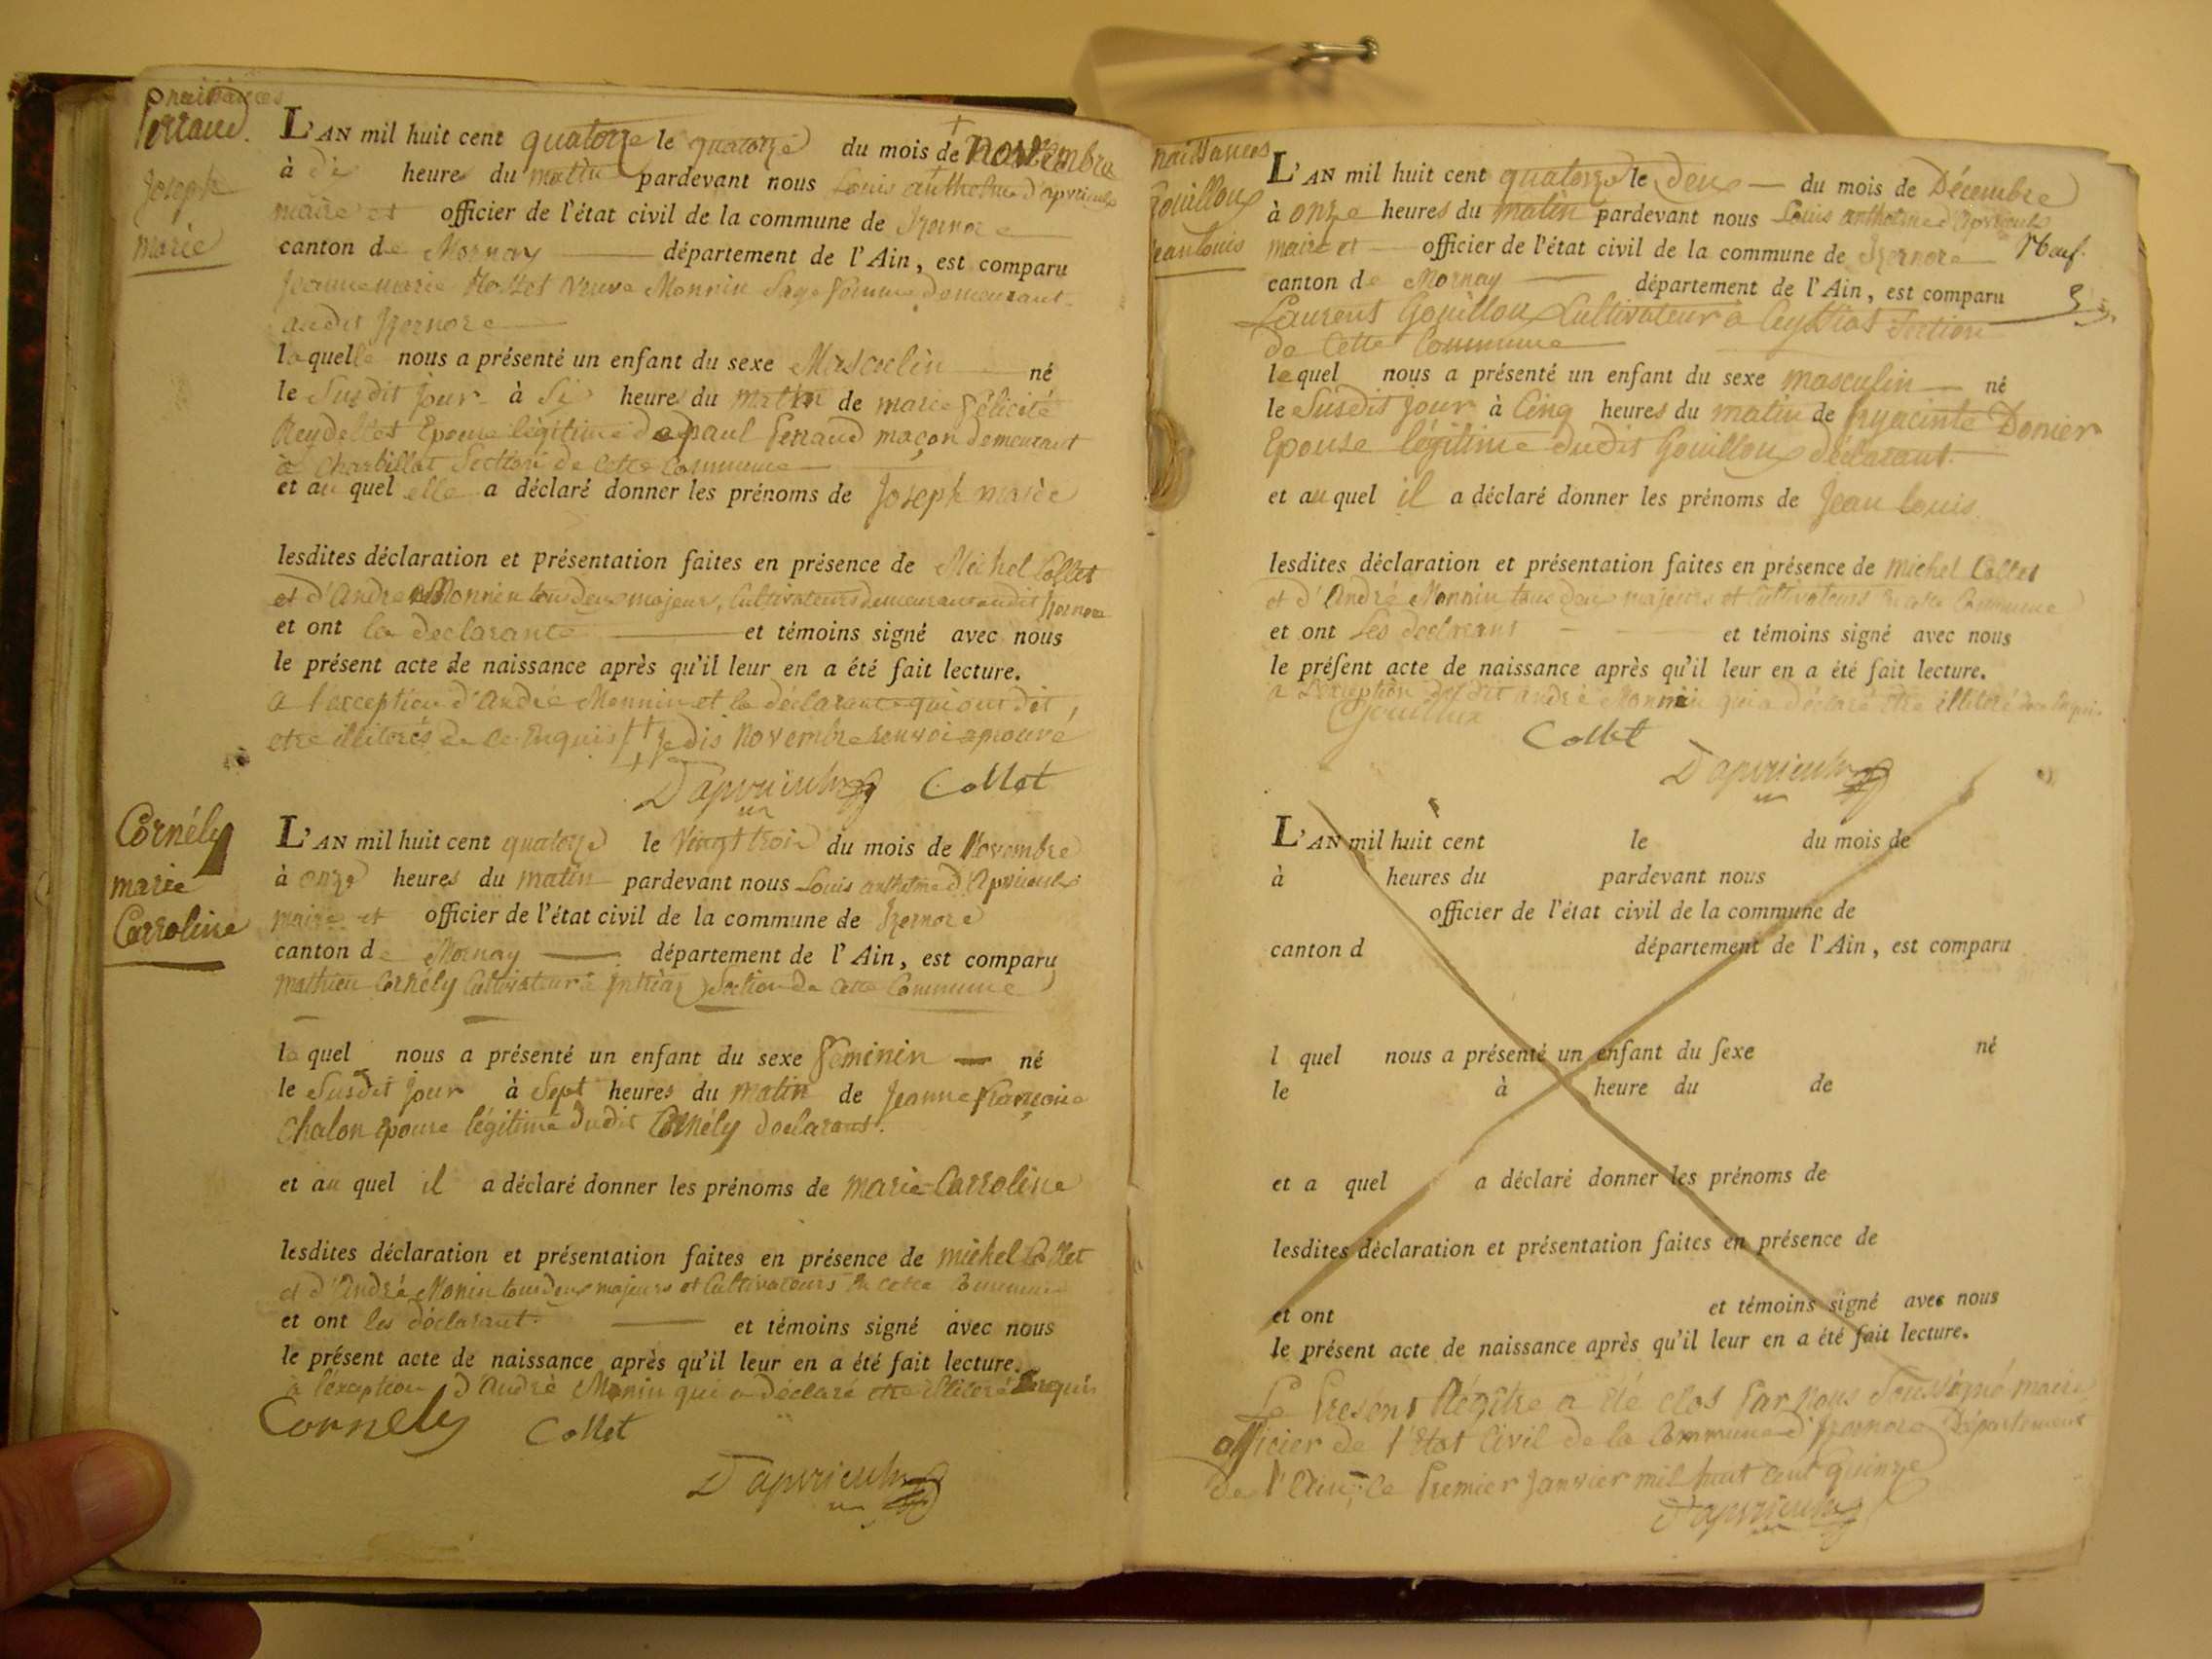 naissances
Perraud.
Joseph
marie
L'AN mil huit cent quatorze le quatorze du mois de novembre
à dix heures du matin pardevant nous Louis anthelme D'apvrieulx
maire et officier de l'état civil de la commune de Izernore
canton de Mornay département de l'Ain, est comparu
Jeanne marie veuve Monnin Sage femme demeurant
audit Izernore
laquelle nous a présenté un enfant du sexe Masculin né
le Susdit jour à Six heures du matin de marie félicité
Reydellet Epouse légitime de paul Perraud maçon demeurant
à Charbillat Section de cette commune
et au quel elle a déclaré donner les prénoms de Joseph marie
lesdites déclaration et présentation faites en présence de Michel Collet
et d'André Monnin tous deux majeurs, Cultivateurs demeurant audit Izernore
et ont la declarante et témoins signé avec nous
le présent acte de naissance après qu'il leur en a été fait lecture.
a l'exception d'André Monnin et la déclarante qui ont dit
etre illiterés de ce Enquis †† je dis Novembre renvoi aprouvé
D'apvrieulx Collet
Cornély
marie
Carroline
L'AN mil huit cent quatorze le Vingt trois du mois de Novembre
à onze heures du matin pardevant nous Louis anthelme D'apvrieulx
maire et officier de l'état civil de la commune de Izernore
canton de Mornay département de l'Ain, est comparu
mathieu Cornély Cultivateur à Intriaz Section de cette Commune
le quel nous a présenté un enfant du sexe féminin né
le Susdit jour à Sept heures du matin de Jeanne françoise
Chalon Epouse légitime dudit Cornély declarant.
et au quel il a déclaré donner les prénoms de marie Carroline
lesdites déclaration et présentation faites en présence de michel Collet
et d'André Monin tous deux majeurs et Cultivateurs en cette Commune
et ont les déclarant et témoins signé avec nous
le présent acte de naissance après qu'il leur en a été fait lecture.
à l'exception d'André Monin qui a déclaré etre illiteré Enquis
Cornely Collet
D'apvrieulx
naissances
Gouilloux
jean louis
L'AN mil huit cent quatorze le deux du mois de Décembre
à onze heures du matin pardevant nous Louis anthelme d'apvrieulx
maire et officier de l'état civil de la commune de Izernore
canton de Mornay département de l'Ain, est comparu
Laurent Gouilloux Cultivateur à Ceyssiat Section
de cette Commune
lequel nous a présenté un enfant du sexe masculin né
le Susdit jour à Cinq heures du matin de hyacinte Donier
Epouse légitime dudit Gouilloux déclarant.
et au quel il a déclaré donner les prénoms de Jean louis
lesdites déclaration et présentation faites en présence de michel Collet
et d'André Monnin tous deux majeurs et Cultivateurs en cette Commune
et ont les declarant et témoins signé avec nous
le préſent acte de naissance après qu'il leur en a été fait lecture.
a L'exception dudit andré Monnin qui a déclaré etre illiteré de ce Enquis.
Gouillux
Collet
D'apvrieulx
L'AN mil huit cent le du mois de
à heures du pardevant nous
officier de l'état civil de la commune de
canton d département de l'Ain, est comparu
l quel nous a présenté un enfant du ſexe né
le à heure du de
et a quel a déclaré donner les prénoms de
lesdites déclaration et présentation faites en présence de
et ont et témoins signé avec nous
le présent acte de naissance après qu'il leur en a été fait lecture.
Le Présent Régitre a été clos Par Nous Soussigné maire
officier de l'Etat Civil de la Commune d'Izernore Département
de l'Ain, le Premier Janvier mil huit cent quinze
D'apvrieulx